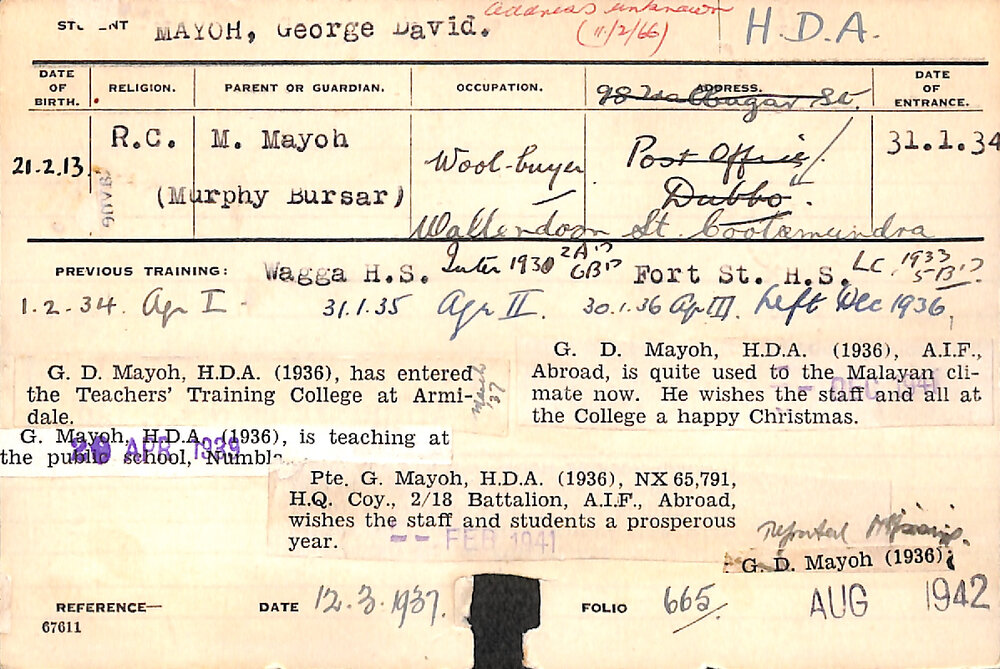 MAYOH, George David.
address unknown
(11/2/66)
H.D.A.
DATE OF BIRTH.
RELIGION.
PARENT OR GUARDIAN.
OCCUPATION.
ADDRESS.
DATE OF ENTRANCE.
21.2.13.
R.C.
M. Mayoh
(Murphy Bursar)
Wool-buyer
Post Office
Dubbo.
Wallendoon St. Cootamundra
31.1.34
PREVIOUS TRAINING: Wagga H.S. Inter 1930 2A's 6B's Fort St. H.S. LC. 1933 5B's
1.2.34. Agr I - 31.1.35 Agr II. 30.1.36 Agr III. Left Dec 1936.
G. D. Mayoh, H.D.A. (1936), has entered
the Teachers' Training College at Armi-
dale.
March '37
G. Mayoh, H.D.A. (1936), is teaching at
the public school, Numbla
20 APR 1939
G. D. Mayoh, H.D.A. (1936), A.I.F.,
Abroad, is quite used to the Malayan cli-
mate now. He wishes the staff and all at
the College a happy Christmas.
DEC 1941
Pte. G. Mayoh, H.D.A. (1936), NX 65,791,
H.Q. Coy., 2/18 Battalion, A.I.F., Abroad,
wishes the staff and students a prosperous
year.
-- FEB 1941
reported Missing.
G. D. Mayoh (1936);
REFERENCE—
67611
DATE 12.3.1937.
FOLIO 665
AUG 1942